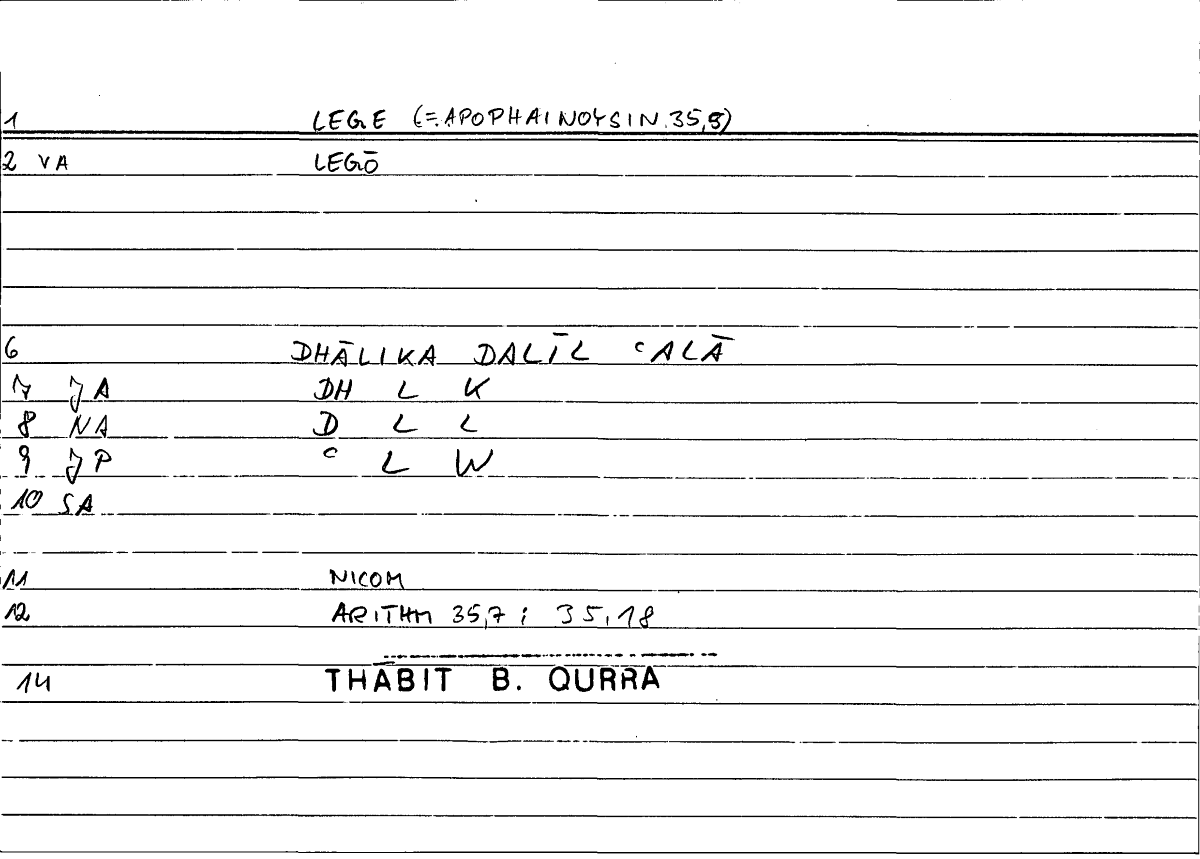 1 LEGE (=APOPHAINOYSIN.35,9)
2 VA LEGŌ
6 DHĀLIKA DALĪL ʿALĀ
7 JA DH L K
8 NA D L L
9 JP ʿ L W
10 SA
11 NICOM
12 ARITHM 35,7 ; 35,18
14 THĀBIT B. QURRA